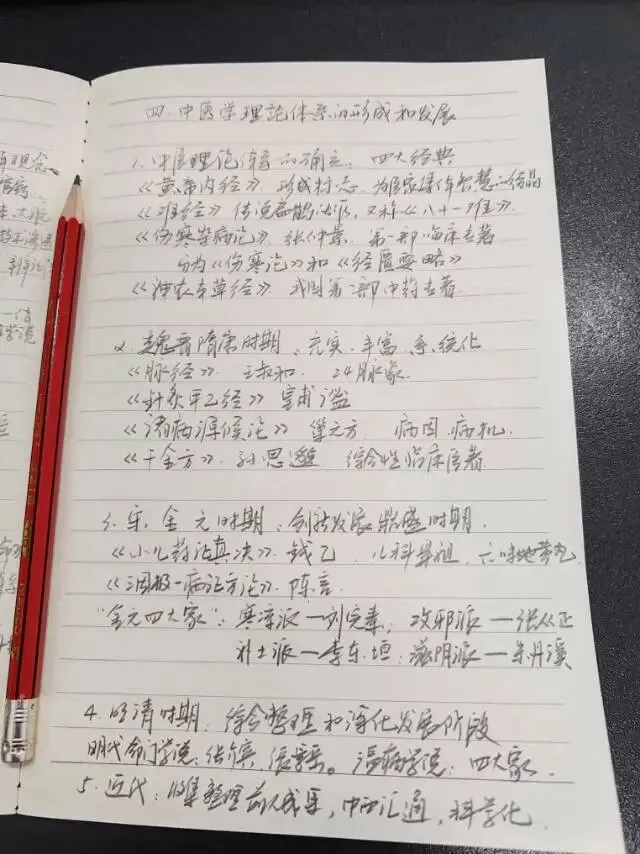 四、中医学理论体系的形成和发展
1. 中医理论体系的确立：四大经典
《黄帝内经》形成标志，为医家集体智慧的结晶
《难经》传说扁鹊所作，又称《八十一难》.
《伤寒杂病论》张仲景，第一部临床专著
分为《伤寒论》和《金匮要略》
《神农本草经》我国第一部中药专著.
2. 魏晋隋唐时期：充实、丰富、系统化
《脉经》. 王叔和. 24脉象.
《针灸甲乙经》皇甫谧
《诸病源候论》巢元方. 病因、病机.
《千金方》. 孙思邈. 综合性临床医著
3. 宋、金元时期：创新发展鼎盛时期.
《小儿药证直诀》. 钱乙. 儿科鼻祖. 六味地黄丸
《三因极一病证方论》. 陈言.
"金元四大家"：寒凉派—刘完素；攻邪派—张从正
补土派—李东垣；滋阴派—朱丹溪
4. 明清时期：综合整理和深化发展阶段
明代命门学说：张介宾、。温病学说：四大家.
5. 近代：收集整理前人成果，中西汇通，科学化.